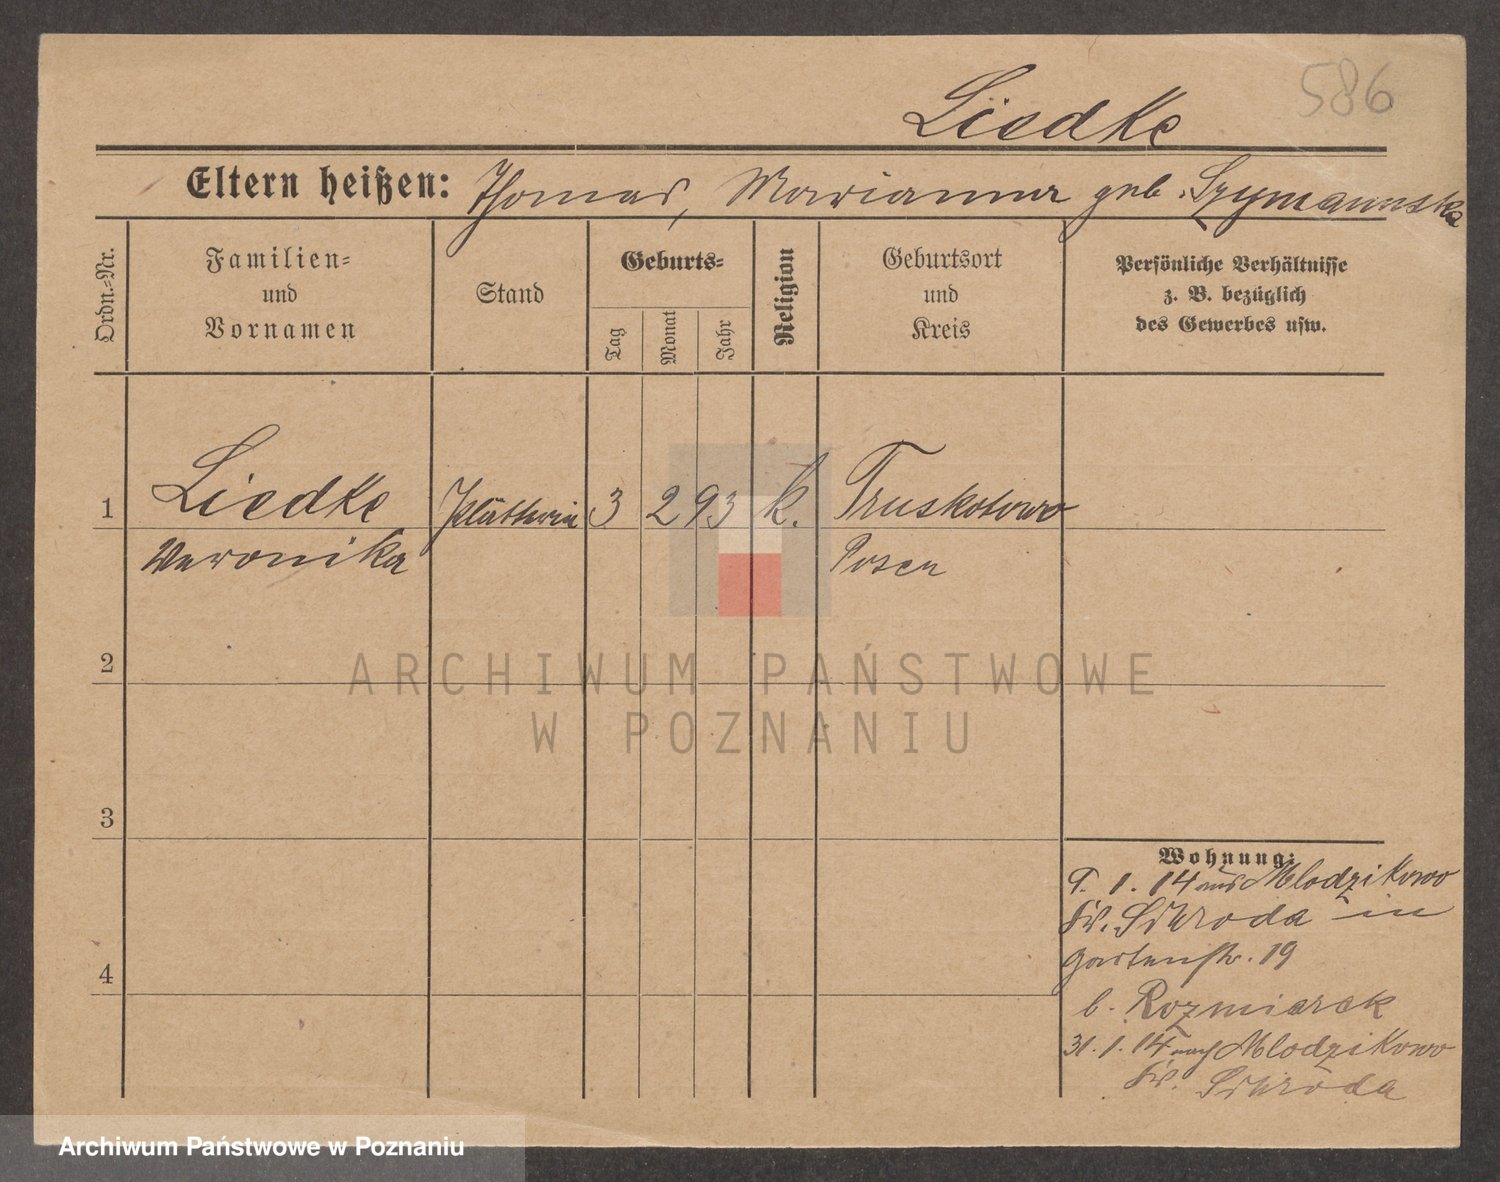 586
Liedke
Eltern heißen: Thomas, Marianna geb. Szymannska
Ordn.=Nr.
Familien=
und
Vornamen
Stand
Geburts=
Tag
Monat
Jahr
Religion
Geburtsort
und
Kreis
Persönliche Verhältnisse
z. B. bezüglich
des Gewerbes usw.
1 Liedke Plätterin 3 2 93 k. Truskotowo
Veronika Posen
2
3
4
Wohnung:
9. 1. 14 aus Mlodzikowo
Kr. Schroda in
Gartenstr. 19
b. Rozmiarek
31. 1. 14 nach Mlodzikowo
Kr. Schroda
ARCHIWUM PAŃSTWOWE
W POZNANIU
Archiwum Państwowe w Poznaniu